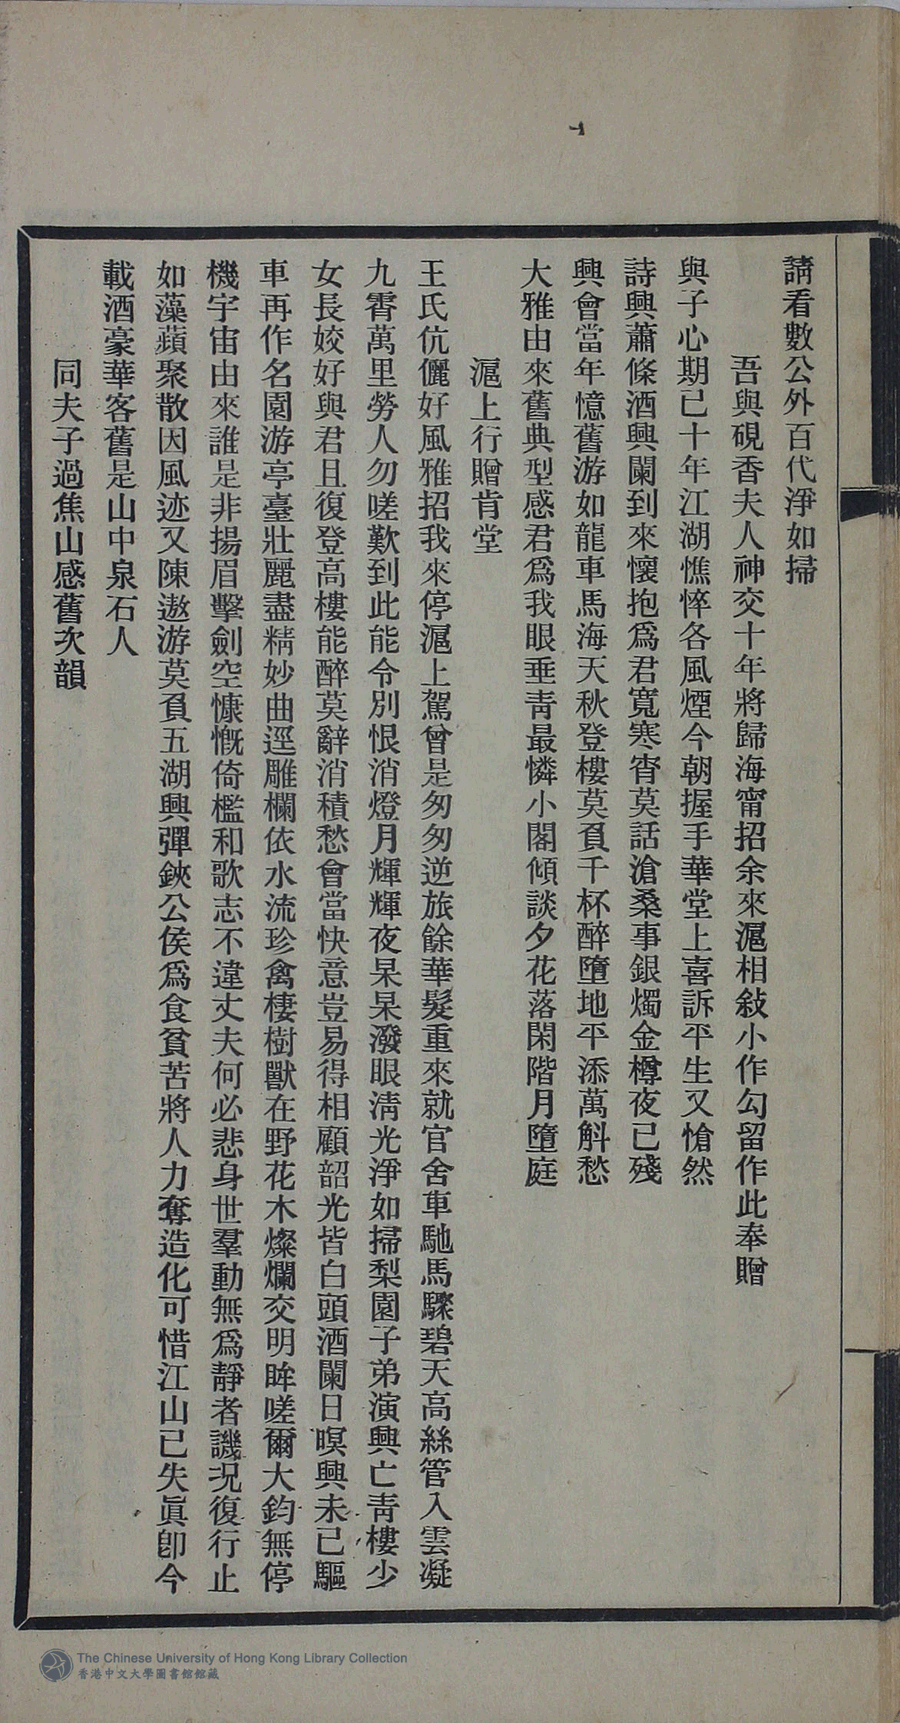 請看數公外百代淨如掃
吾與硯香夫人神交十年將歸海甯招余來滬相敍小作勾留作此奉贈
與子心期已十年江湖憔悴各風煙今朝握手華堂上喜訴平生又愴然
詩興蕭條酒興闌到來懷抱爲君寬寒宵莫話滄桑事銀燭金樽夜已殘
興會當年憶舊游如龍車馬海天秋登樓莫負千杯醉墮地平添萬斛愁
大雅由來舊典型感君爲我眼垂靑最憐小閣傾談夕花落閑階月墮庭
滬上行贈肯堂
王氏伉儷好風雅招我來停滬上駕曾是匆匆逆旅餘華髮重來就官舍車馳馬驟碧天高絲管入雲凝
九霄萬里勞人勿嗟歎到此能令別恨消燈月輝輝夜杲杲潑眼淸光淨如掃梨園子弟演興亡靑樓少
女長姣好與君且復登高樓能醉莫辭消積愁會當快意豈易得相顧韶光皆白頭酒闌日暝興未已驅
車再作名園游亭臺壯麗盡精妙曲逕雕欄依水流珍禽棲樹獸在野花木燦爛交明眸嗟爾大鈞無停
機宇宙由來誰是非揚眉擊劍空慷慨倚檻和歌志不違丈夫何必悲身世羣動無爲靜者譏況復行止
如藻蘋聚散因風迹又陳遨游莫負五湖興彈鋏公侯爲食貧苦將人力奪造化可惜江山已失眞卽今
載酒豪華客舊是山中泉石人
同夫子過焦山感舊次韻
The Chinese University of Hong Kong Library Collection
香港中文大學圖書館館藏